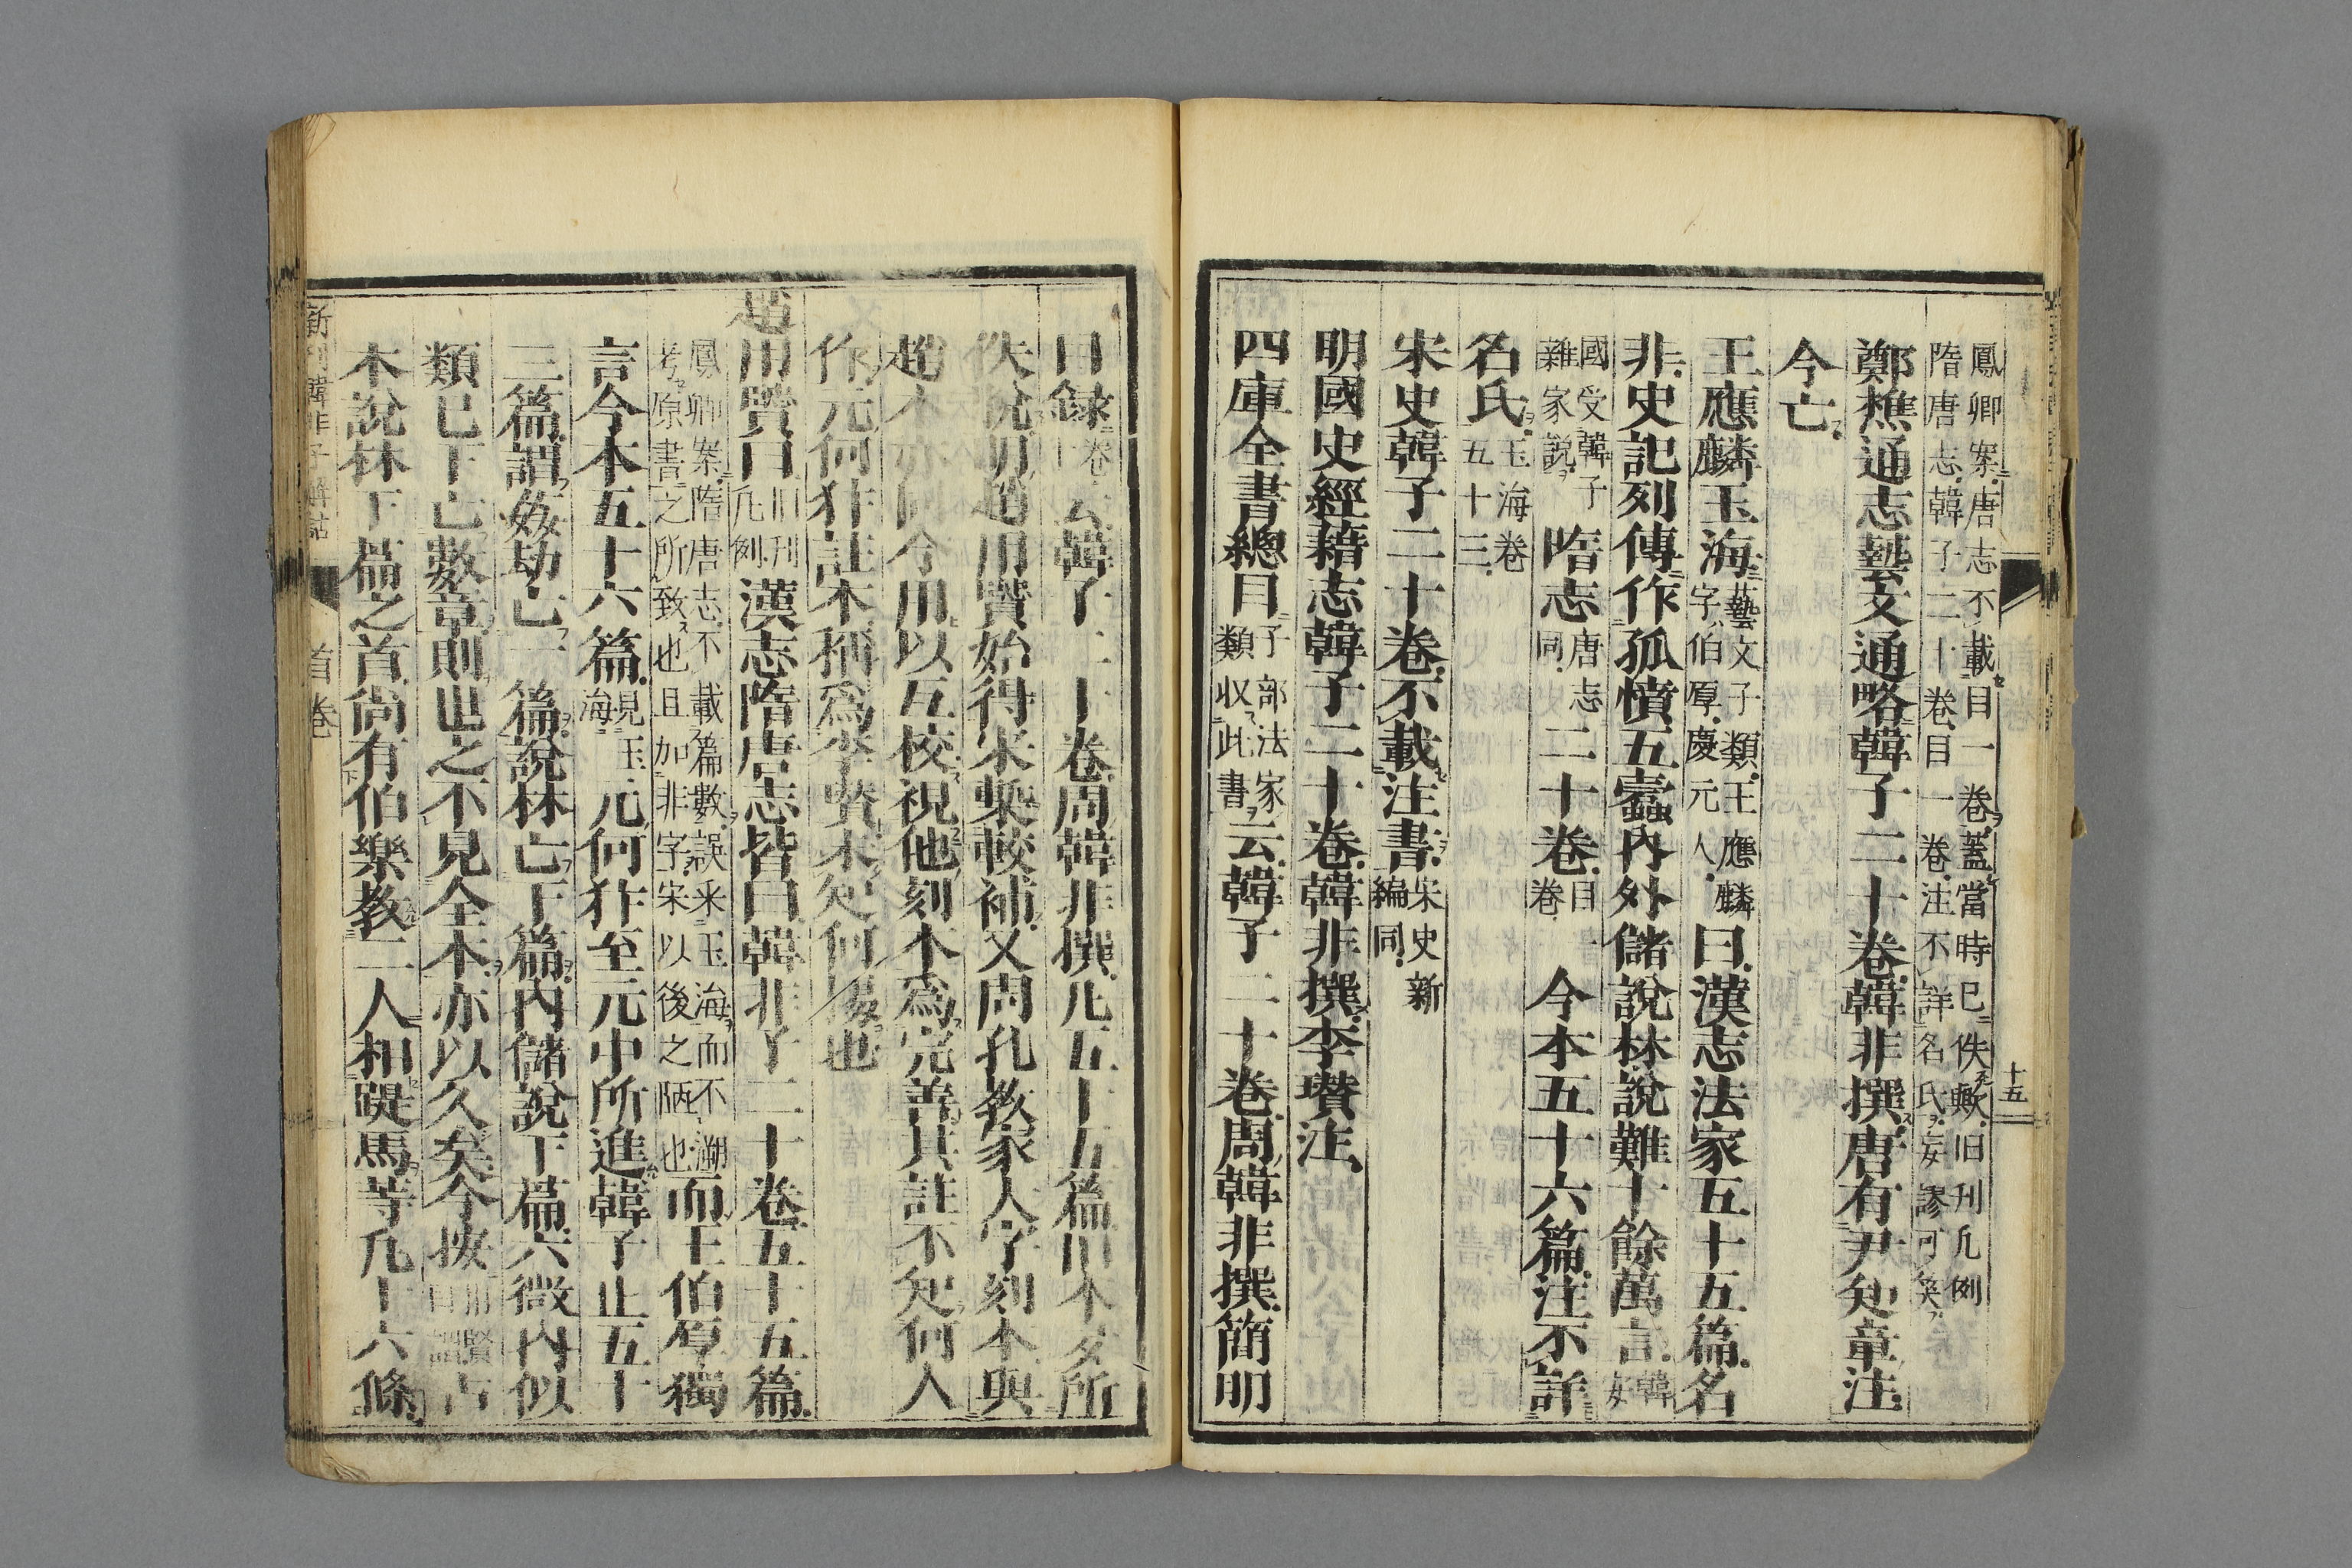 鳳卿案唐志不載目一卷蓋當時已佚歟旧刋凡例
隋唐志韓子二十卷目一卷注不詳名氏妄謬可笑
鄭樵通志藝文通略韓子二十卷韓非撰唐有尹知章注
今亡
王應麟玉海藝文子類王應麟字伯厚慶元人曰漢志法家五十五篇名
非史記列傳作孤憤五蠹內外儲說林說難十餘萬言韓安
國受韓子雜家說隋志唐志同二十卷目一卷今本五十六篇注不詳
名氏玉海卷五十三
宋史韓子二十卷不載注書宋史新編同
明國史經藉志韓子二十卷韓非撰李瓚注
四庫全書總目子部法家類収此書云韓子二十卷周韓非撰簡明
目錄卷十云韓子二十卷周韓非撰凡五十五篇旧本多所
佚脫明趙用賢始得宋槧較補又周孔教家大字刻本與
趙本亦同今用以互校視他刻本為完善其註不知何人
作元何犿註本稱為李瓚未知何據也
趙用賢曰旧刋凡例漢志隋唐志皆曰韓非子二十卷五十五篇
鳳卿案隋唐志不載篇數誤采玉海而不溯
考原書之所致也且加非字宋以後之陋也而王伯厚獨
言今本五十六篇見玉海元何犿至元中所進韓子止五十
三篇謂姦劫亡一篇說林亡下篇內儲說下篇六微內似
類已下亡數章則世之不見全本亦以久矣今按用賢曰謂古
本說林下篇之首尚有伯樂教二人相踶馬等凡十六條
新刋韓非子解詁
首卷
十五